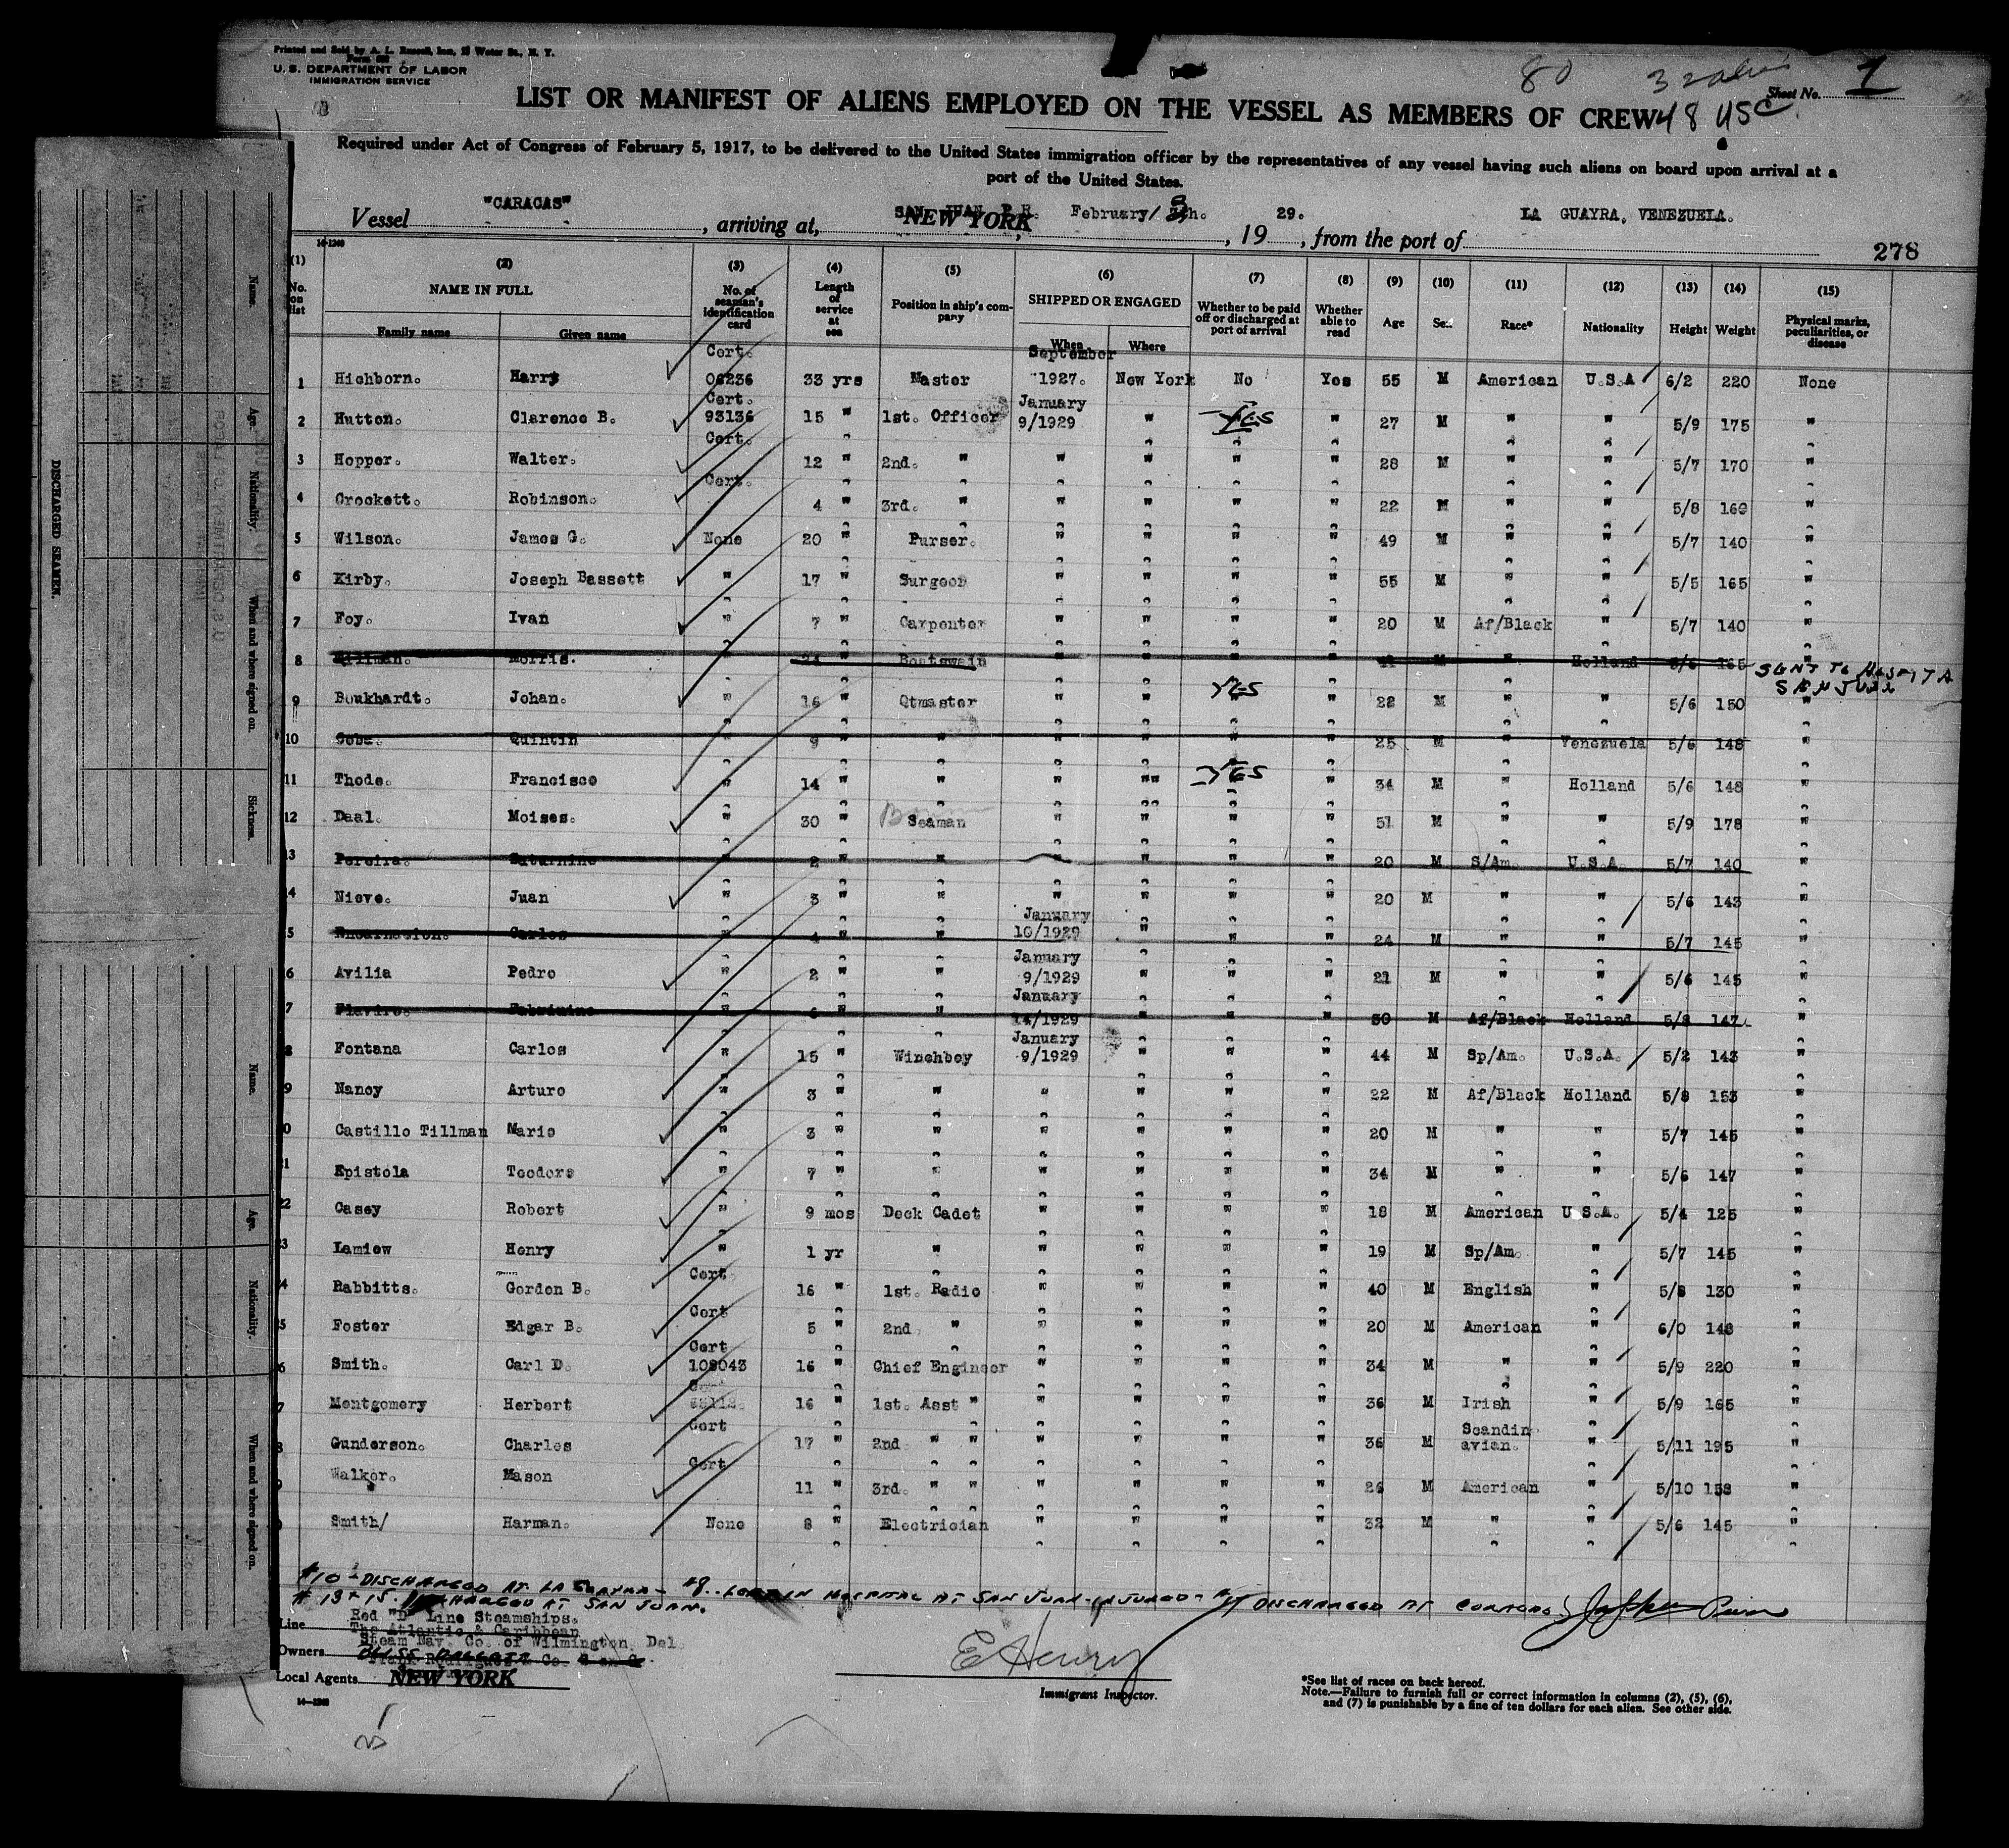 Printed and Sold by A. L. Russell, Inc., Water St., N. Y.
U. S. DEPARTMENT OF LABOR
IMMIGRATION SERVICE
80
Sheet No. 1
LIST OR MANIFEST OF ALIENS EMPLOYED ON THE VESSEL AS MEMBERS OF CREW 48 USC
Required under Act of Congress of February 5, 1917, to be delivered to the United States immigration officer by the representatives of any vessel having such aliens on board upon arrival at a
port of the United States.
Vessel "CARACAS", arriving at, SAN JUAN P.R. NEW YORK February, 1929., from the port of LA GUAYRA, VENEZUELA.
278
14-1240
(1) (2) (3) (4) (5) (6) (7) (8) (9) (10) (11) (12) (13) (14) (15)
No. on list NAME IN FULL Family name Given name No. of seaman's identification card Length of service at sea Position in ship's company SHIPPED OR ENGAGED When Where Whether to be paid off or discharged at port of arrival Whether able to read Age Sex Race* Nationality Height Weight Physical marks, peculiarities, or disease
1 Hichborn. Harry Cert. 06236 33 yrs Master September 1927. New York No Yes 55 M American U.S.A 6/2 220 None
2 Hutton. Clarence B. Cert. 93136 15 " 1st. Officer January 9/1929 " YES " 27 M " " 5/9 175 "
3 Hopper. Walter. Cert. 12 " 2nd. " " " " " 28 M " " 5/7 170 "
4 Crockett. Robinson. Cert. 4 " 3rd. " " " " " 22 M " " 5/8 160 "
5 Wilson. James G. None 20 " Purser. " " " " 49 M " " 5/7 140 "
6 Kirby. Joseph Bassett " 17 " Surgeon " " " " 55 M " " 5/5 165 "
7 Foy. Ivan " 7 " Carpenter " " " " 20 M Af/Black " 5/7 140 "
8 Morris. Boatswain M " Holland 5/6 165 SENT TO HOSPITA
SAN JUAN
9 Boukhardt. Johan. " 16 " Qtmaster " " YES " 28 M " " 5/6 150 "
10 Quintin " 9 " " " " " " 25 M " Venezuela 5/6 148 "
11 Thode. Francisco " 14 " " " "" YES " 34 M " Holland 5/6 148 "
12 Daal. Moises. " 30 " Seaman " " " " 51 M " " 5/9 178 "
13 Pereira. Saturnino " 2 " " " " " 20 M S/Am. U.S.A. 5/7 140 "
14 Nieve. Juan " 3 " " " " " " 20 M " " 5/6 143 "
15 Encarnacion. Carlos 4 " " January 10/1929 " " " 24 M " " 5/7 145 "
16 Avilia Pedro " 2 " " January 9/1929 " " " 21 M " " 5/6 145 "
17 " 6 " January 14/1929 " " " 30 M Af/Black Holland 5/8 147 "
18 Fontana Carlos " 15 " Winchboy January 9/1929 " " " 44 M Sp/Am. U.S.A. 5/2 143 "
19 Nancy Arturo " 3 " " " " " " 22 M Af/Black Holland 5/8 153 "
20 Castillo Tillman Mario " 3 " " " " " " 20 M " " 5/7 145 "
21 Epistola Teodore " 7 " " " " " " 34 M " " 5/6 147 "
22 Casey Robert " 9 mos Deck Cadet " " " " 18 M American U.S.A. 5/4 125 "
23 Lamiew Henry " 1 yr " " " " " 19 M Sp/Am. " 5/7 145 "
24 Rabbitts. Gordon B. Cert. 16 " 1st. Radio " " " " 40 M English " 5/8 130 "
25 Foster Edgar B. Cert 5 " 2nd " " " " " 20 M American " 6/0 148 "
26 Smith. Carl D. Cert 109043 16 " Chief Engineer " " " " 34 M " " 5/9 220 "
27 Montgomery Herbert 16 " 1st. Asst " " " " " 36 M Irish " 5/9 165 "
28 Gunderson. Charles Cert 17 " 2nd " " " " " " 36 M Scandinavian. " 5/11 195 "
29 Walker. Mason Cert 11 " 3rd. " " " " " " 26 M American " 5/10 158 "
30 Smith/ Harman. None 8 " Electrician " " " " 32 M " " 5/6 145 "
#10 - DISCHARGED AT LA GUAYRA - #8.. IN HOSPITAL AT SAN JUAN - INJURED - #17 DISCHARGED AT
# 13 + 15. DISCHARGED AT SAN JUAN.
Line Red "D" Line Steamships.
The Atlantic & Caribbean
Owners Steam Nav. Co. of Wilmington Del
BLISS DALLETT
Local Agents NEW YORK
14-1240
E Henry
Immigrant Inspector.
*See list of races on back hereof.
Note.—Failure to furnish full or correct information in columns (2), (5), (6),
and (7) is punishable by a fine of ten dollars for each alien. See other side.
DISCHARGED SEAMEN.
Name. Age. Nationality. When and where signed on. Sickness.
Name. Age. Nationality. When and where signed on.